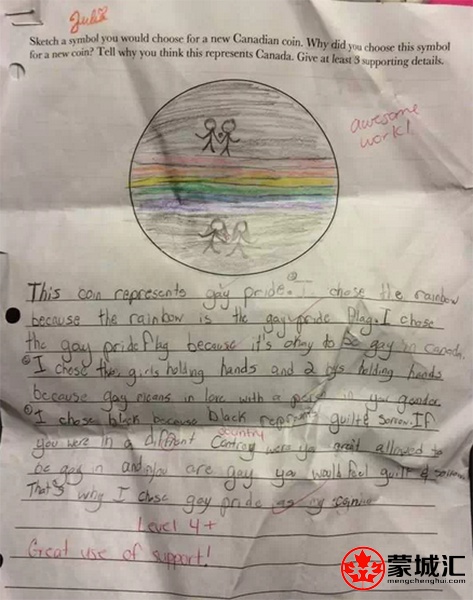 Sketch a symbol you would choose for a new Canadian coin. Why did you choose this symbol
for a new coin? Tell why you think this represents Canada. Give at least 3 supporting details.
awesome
work!
This coin represents gay pride. I chose the rainbow
because the rainbow is the gay pride flag. I chose
the gay pride flag because it's okay to be gay in canada.
I chose two girls holding hands and 2 boys holding hands
because gay means in love with a person in your gender.
I chose black because black represents guilt & sorrow. If
country
you were in a diffrent were ya allowed to
be gay in and you are gay ya would feel guilt &
That's why I chose gay pride as my
Level 4+
Great use of support!
蒙城汇
mengchenghui.com